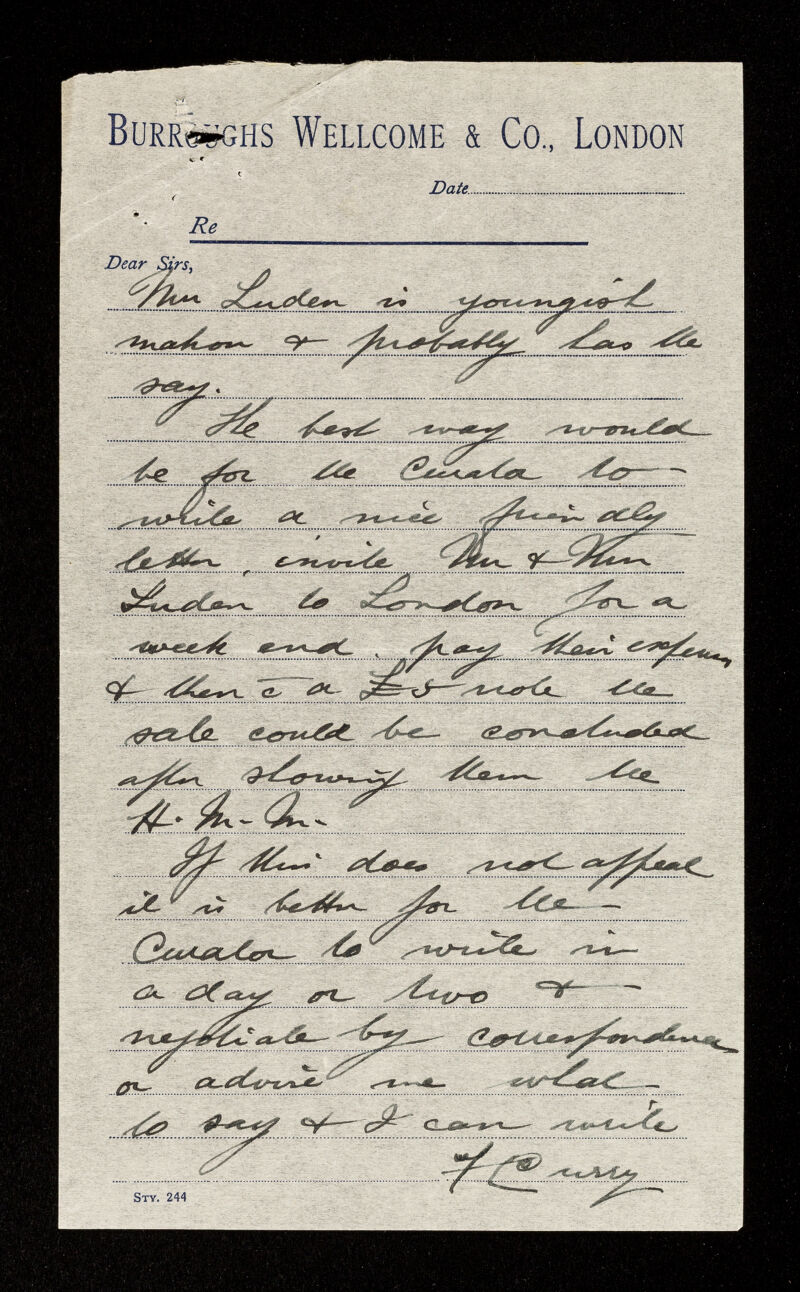 BURROUGHS WELLCOME & CO., LONDON
Date
Re
Dear Sirs,
Luden is youngish
matron & probably has the
say.
The best way would
be for the Curator to
write a nice friendly
letter, invite Mr & Mrs
Luden to London for a
week end. pay their expenses
& then c̄ a £5 note the
sale could be concluded
after showing them the
H. M. M.
If this does not appeal
it is better for the
Curator to write in
a day or two &
negotiate by correspondence
or advise me what
to say & I can write
F Curry
STY. 244